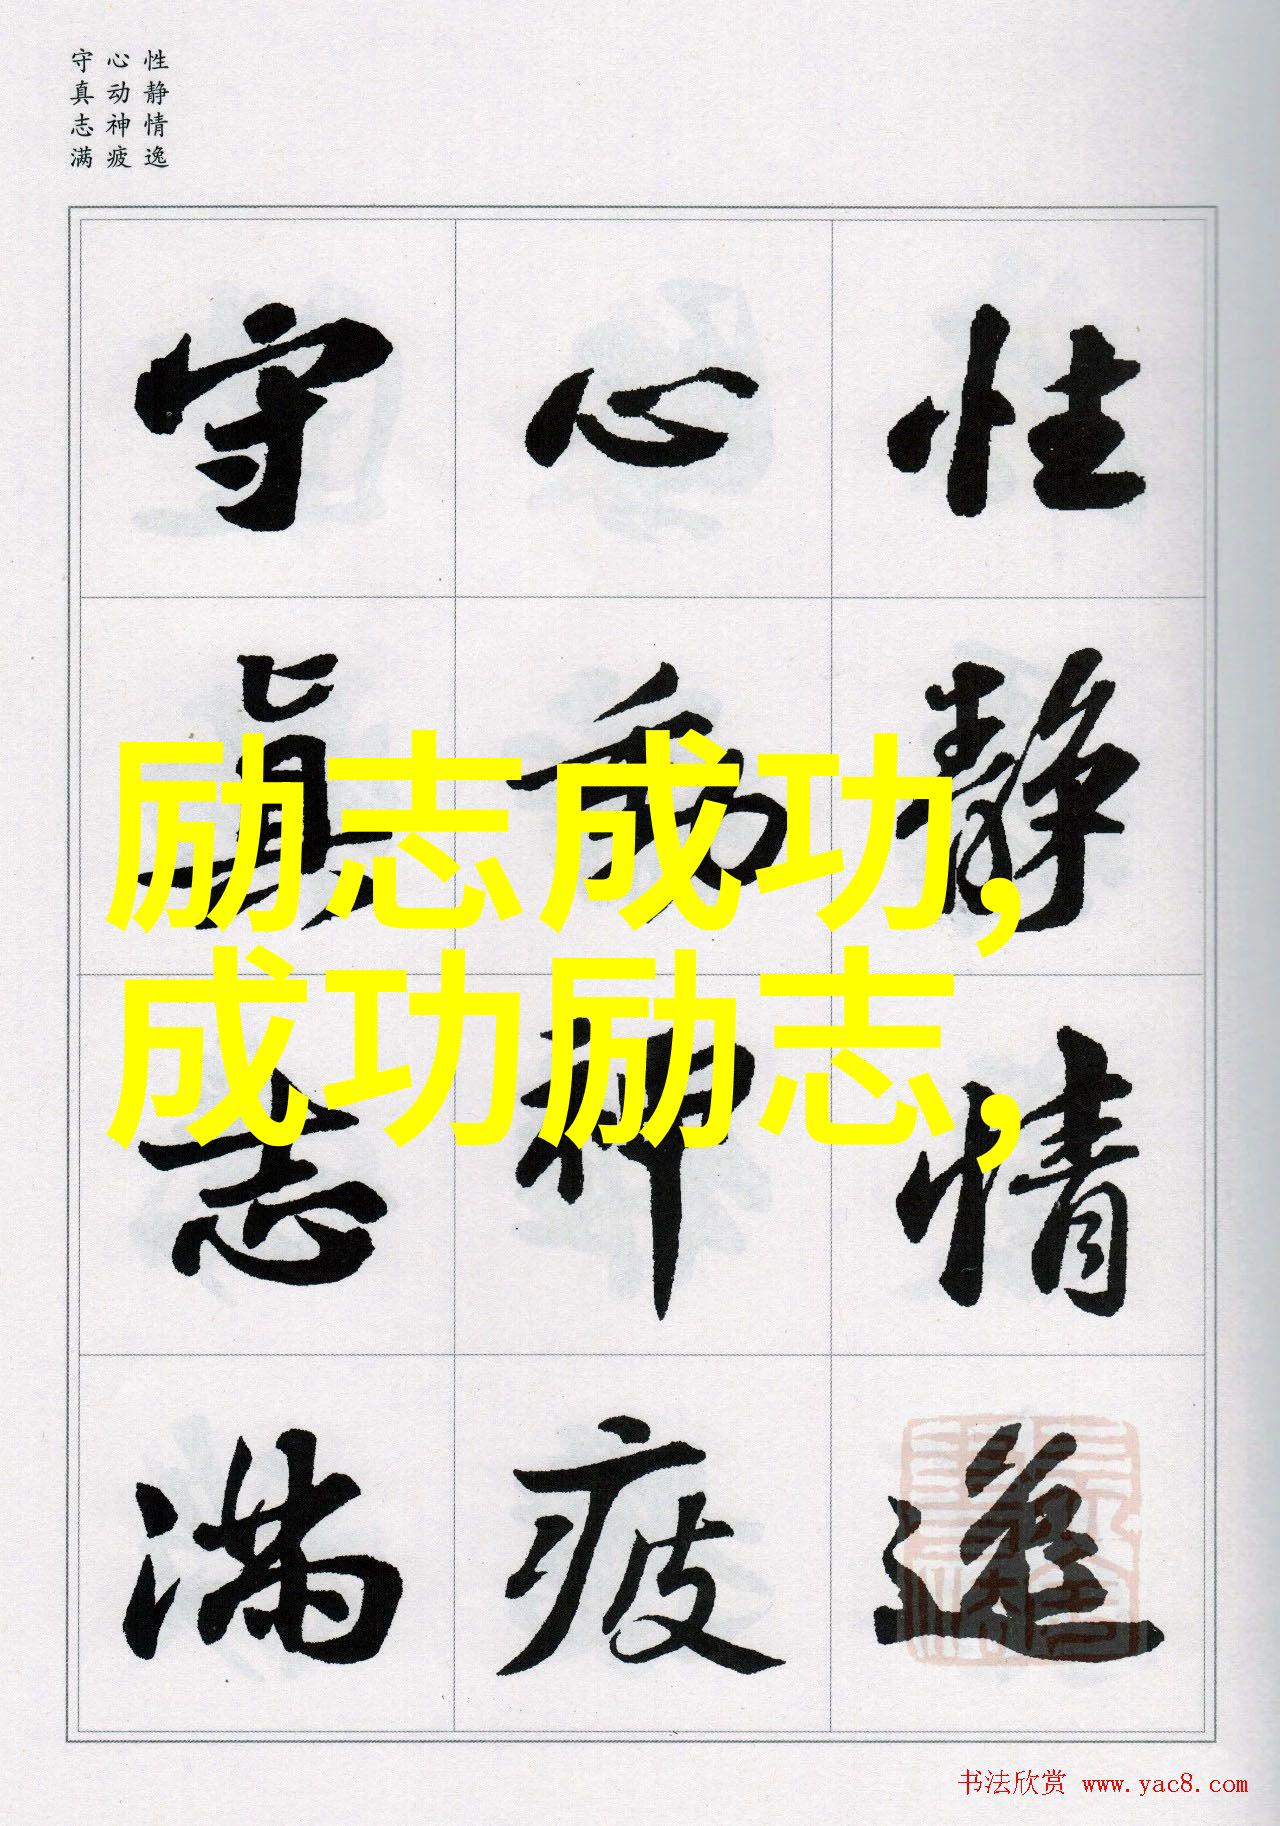 性静情逸
心动神疲
守真志满
性静情逸
心动神疲
守真志满
励志成功,
成功励志,
书法欣赏 www.yac8.com